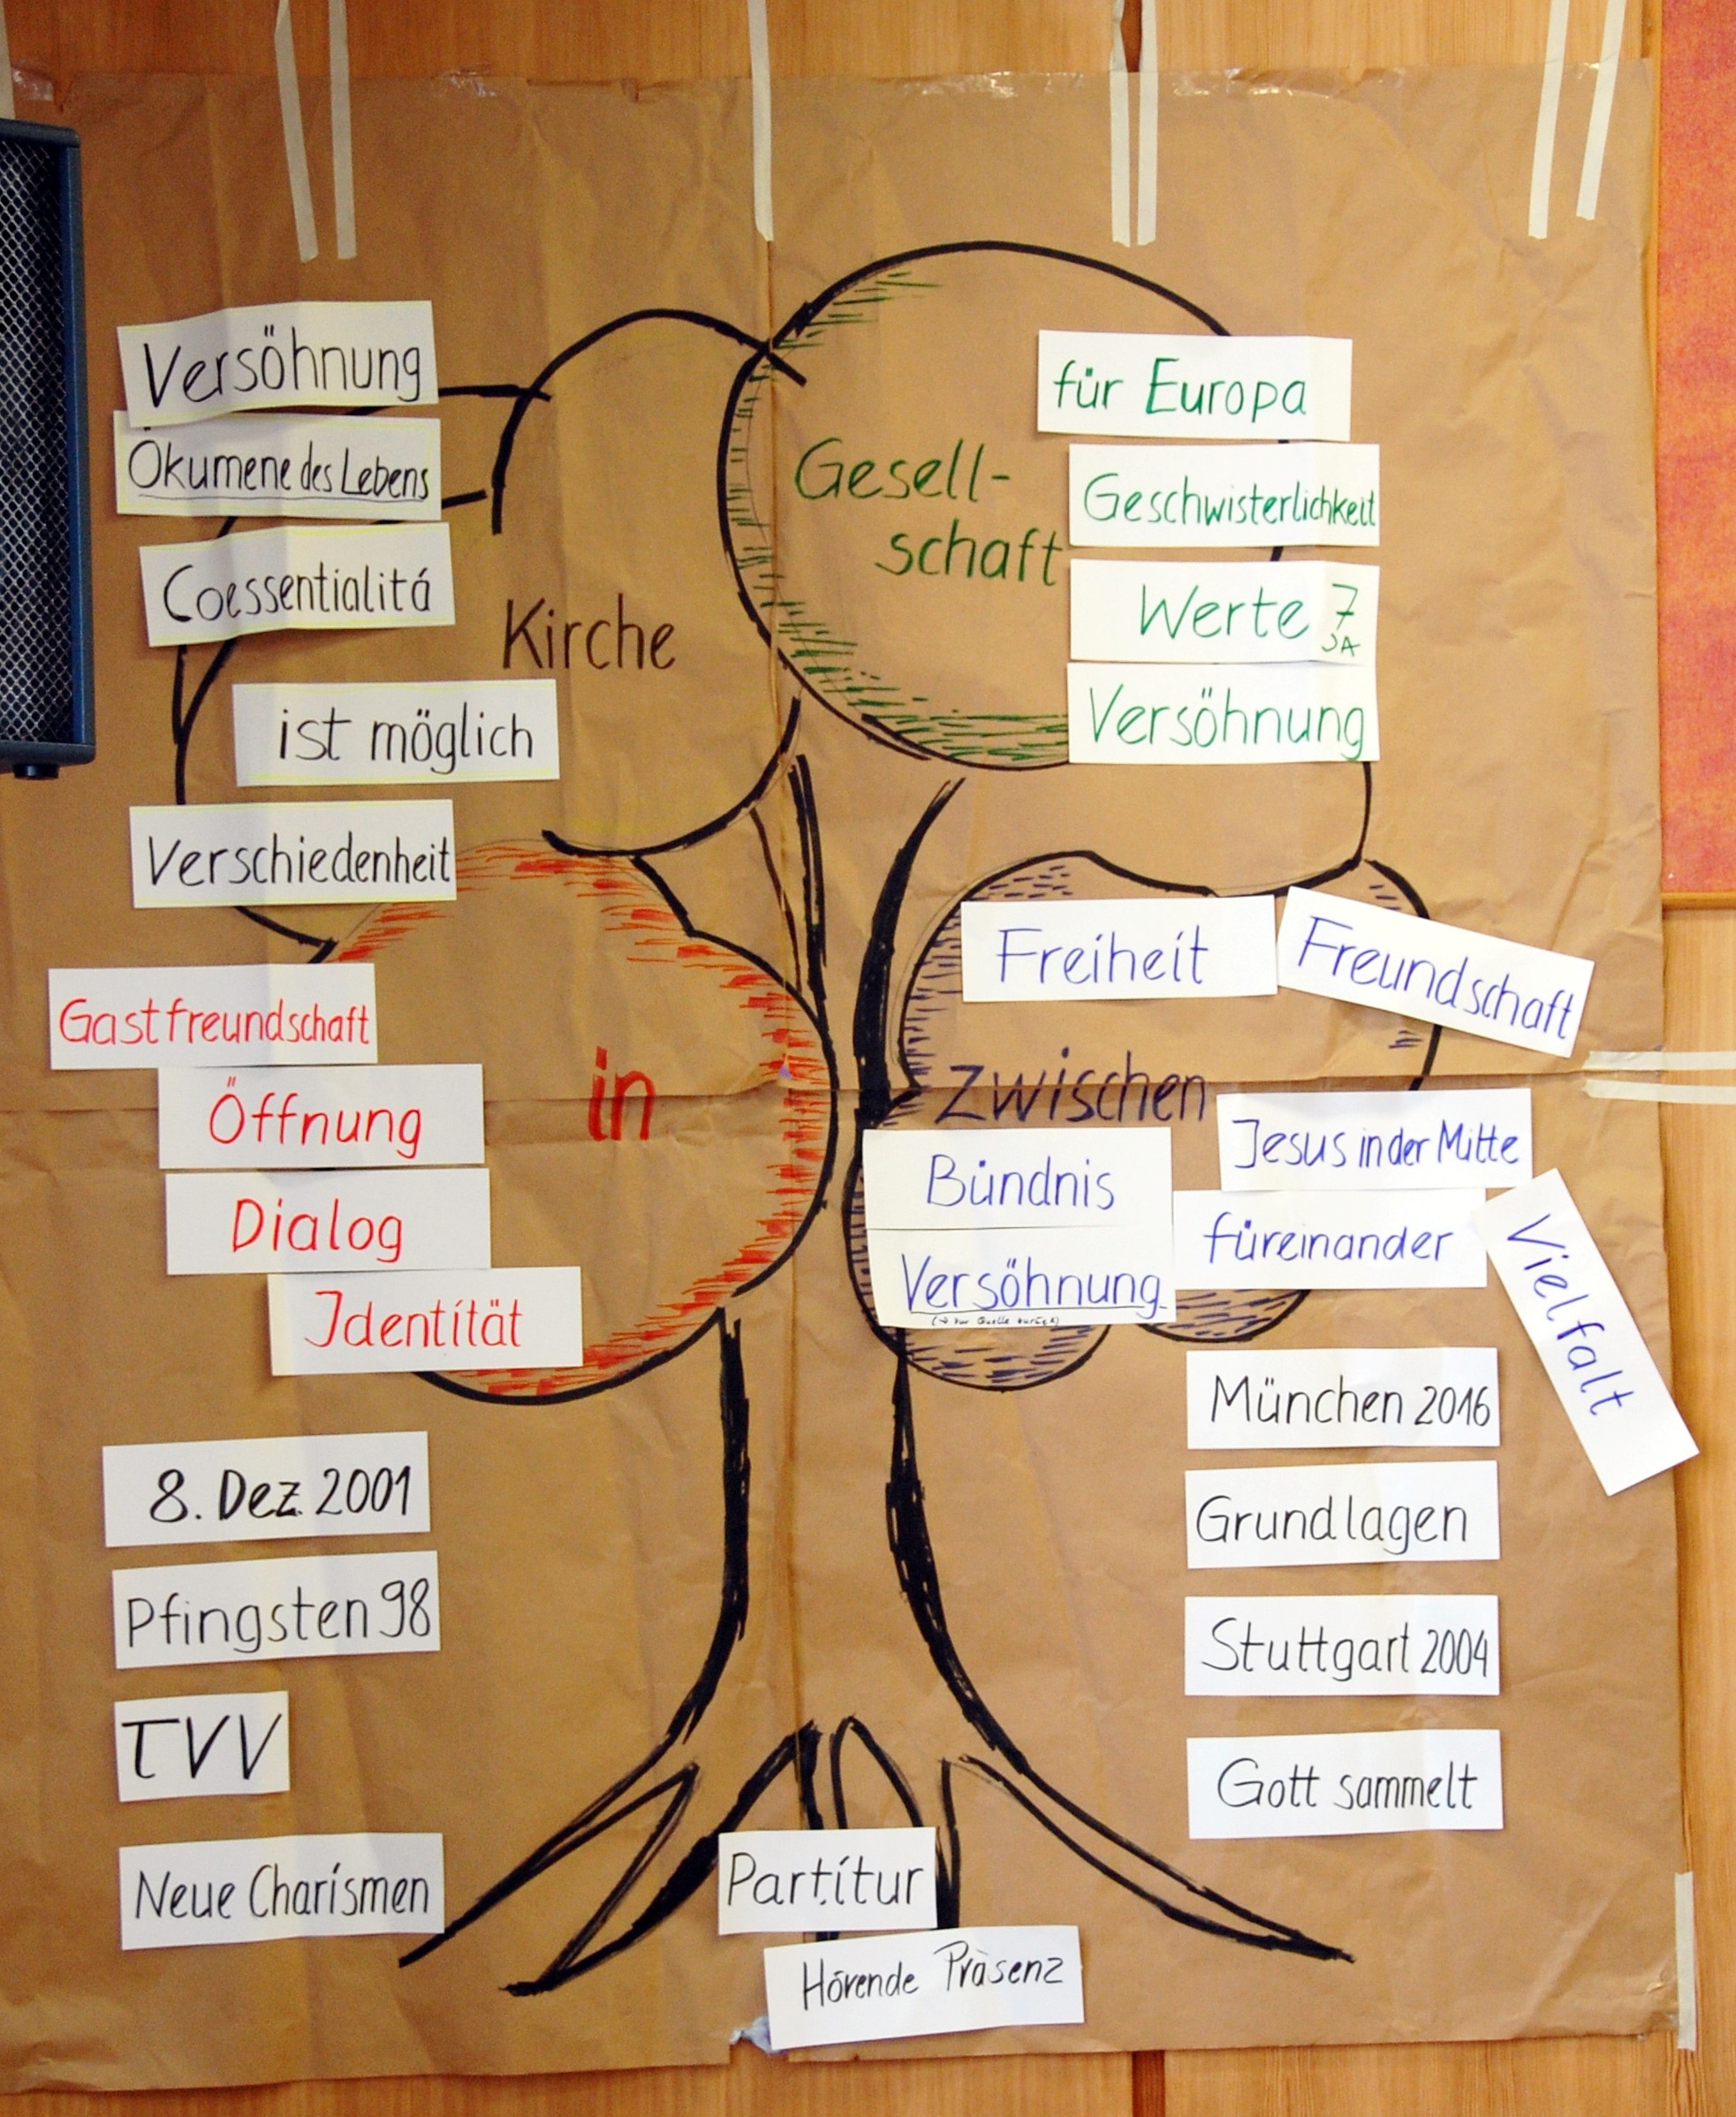 Versöhnung
Ökumene des Lebens
Coessentialitá
Kirche
ist möglich
Verschiedenheit
Gesell-
schaft
für Europa
Geschwisterlichkeit
Werte 7
JA
Versöhnung
Gastfreundschaft
Öffnung
Dialog
Identität
in
Freiheit
Freundschaft
zwischen
Jesus in der Mitte
Bündnis
füreinander
Versöhnung
(→ zur Quelle zurück)
Vielfalt
8. Dez. 2001
Pfingsten 98
TVV
Neue Charismen
München 2016
Grundlagen
Stuttgart 2004
Gott sammelt
Partitur
Hörende Präsenz